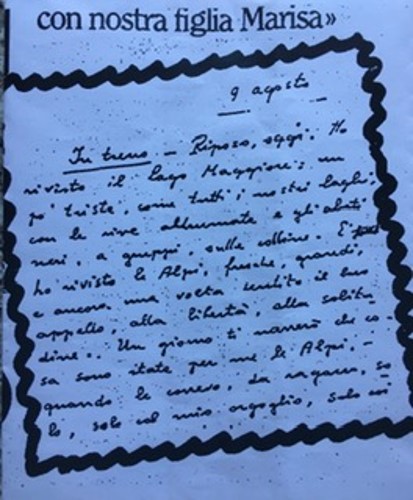 con nostra figlia Marisa»
9 agosto
In treno - Riposo, oggi. Ho
rivisto il lago Maggiore: un
po' triste, come tutti i nostri laghi,
con le rive abbrunate e gli abeti
neri, a gruppi, sulle colline. E
ho rivisto le Alpi, fresche, grandi,
e ancora una volta sentito il loro
appello, alla libertà, alla solitu
dine. Un giorno ti narrerò che co-
sa sono state per me le Alpi. -
quando le correvo, da ragazzo, so
lo, solo col mio orgoglio, solo coi